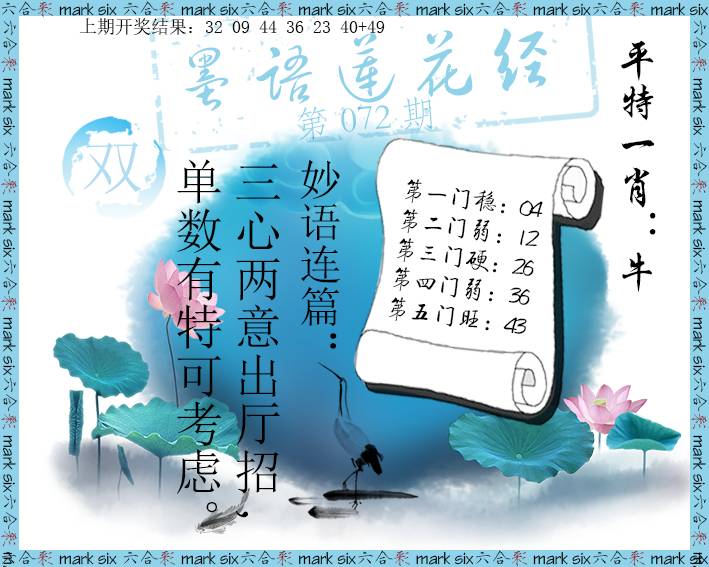 上期开奖结果：32 09 44 36 23 40+49
墨语莲花经
第 072 期
双
平特一肖：牛
妙语连篇：
三心两意出厅招，
单数有特可考虑。
第一门稳：04
第二门弱：12
第三门硬：26
第四门弱：36
第五门旺：43
六合彩 mark six 六合彩 mark six 六合彩 mark six 六合彩 mark six 六合彩 mark six